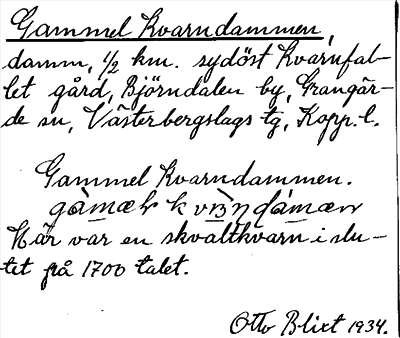 Gammel Kvarndammen,
damm, ½ km. sydöst Kvarnfal-
let gård, Björndalen by, Grangär-
de sn, Västerbergslags tg, Kopp. l.
Gammel Kvarndammen.
Här var en skvaltkvarn i slu-
tet på 1700 talet.
Otto Blixt 1934.